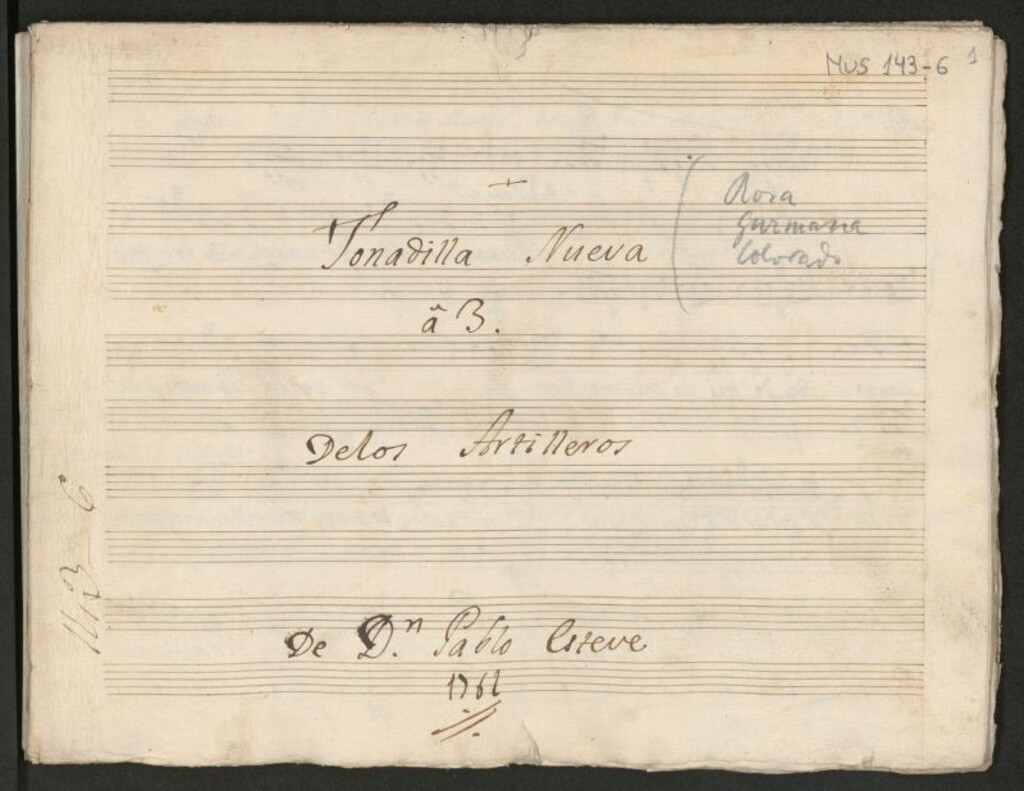 MUS 143-6
1
+
Tonadilla Nueva
Rosa
Guzmana
Colorado
â 3.
Delos Artilleros
143 6
De D.ⁿ Pablo Esteve
1761